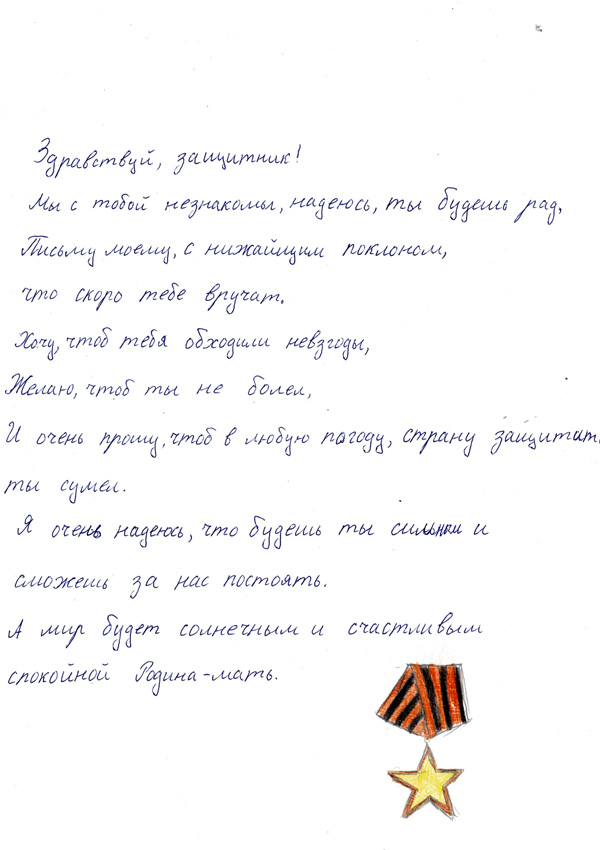 Здравствуй, защитник!
Мы с тобой незнакомы, надеюсь, ты будешь рад,
Письму моему, с нижайщим поклоном,
что скоро тебе вручат.
Хочу, чтоб тебя обходили невзгоды,
Желаю, чтоб ты не болел,
И очень прошу, чтоб в любую погоду, страну защитить
ты сумел.
Я очень надеюсь, что будешь ты сильным и
сможешь за нас постоять.
А мир будет солнечным и счастливым
спокойной Родина-мать.